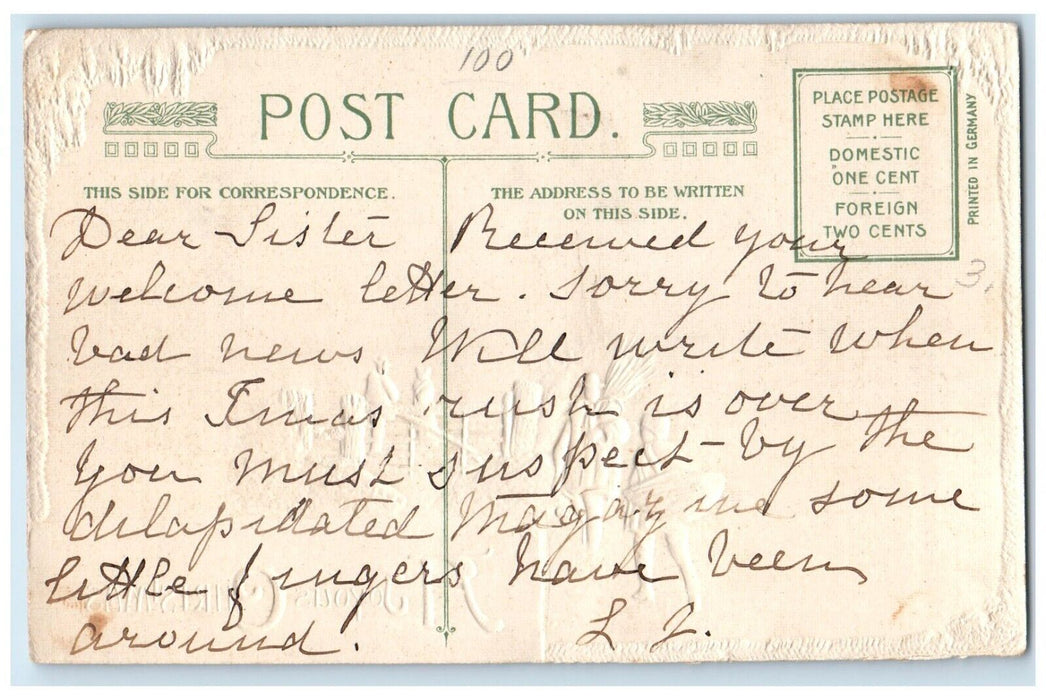 100
POST CARD.
PLACE POSTAGE
STAMP HERE
DOMESTIC
ONE CENT
FOREIGN
TWO CENTS
PRINTED IN GERMANY
THIS SIDE FOR CORRESPONDENCE.
THE ADDRESS TO BE WRITTEN
ON THIS SIDE.
3.
Dear Sister Received your
welcome letter. sorry to hear
bad news Will write when
this Xmas rush is over
You must suspect by the
dilapidated Magazine some
little fingers have been
around. L J.